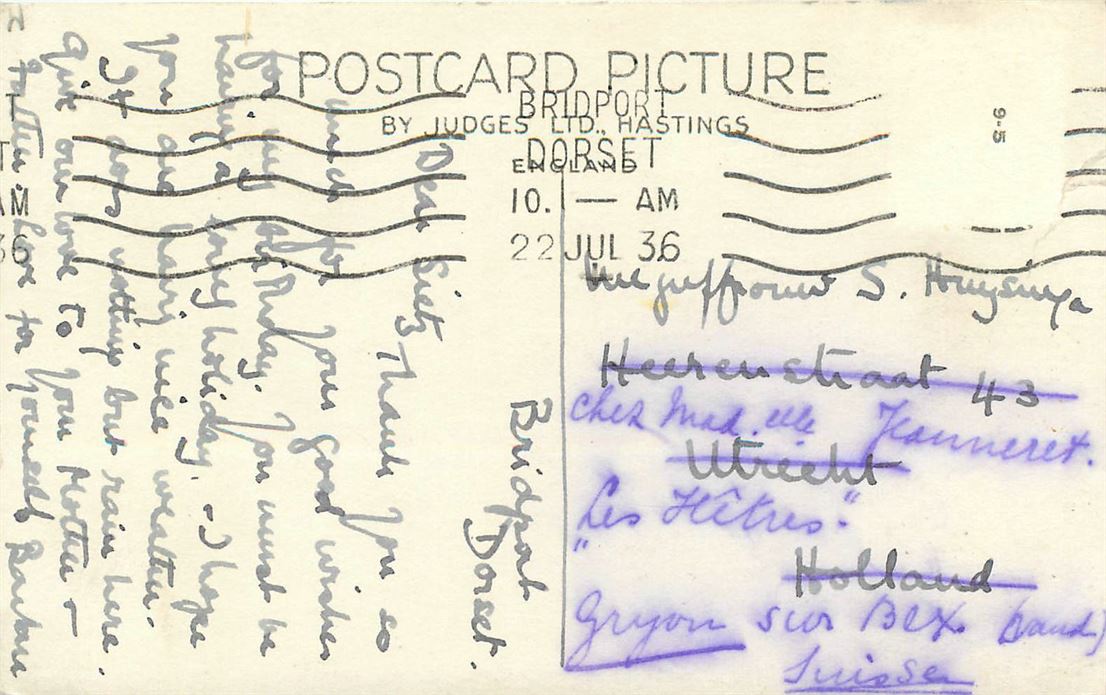 POSTCARD PICTURE
BY JUDGES LTD., HASTINGS
ENGLAND
BRIDPORT
DORSET
10. — AM
22 JUL 36
T
AM
36
9-5
Bridport
Dorset.
Dear
Thank you so
much for your good wishes
for my birthday. You must be
having a holiday. - I hope
you are having nice weather.
It does nothing but rain here.
Give our love to your Mother &
father. Love for yourself Barbara
S.
Heerenstraat 43
Utrecht
Holland
chez Mad. elle Jeanneret.
"Les Hêtres"
Gryon sur Bex (Vaud)
Suisse